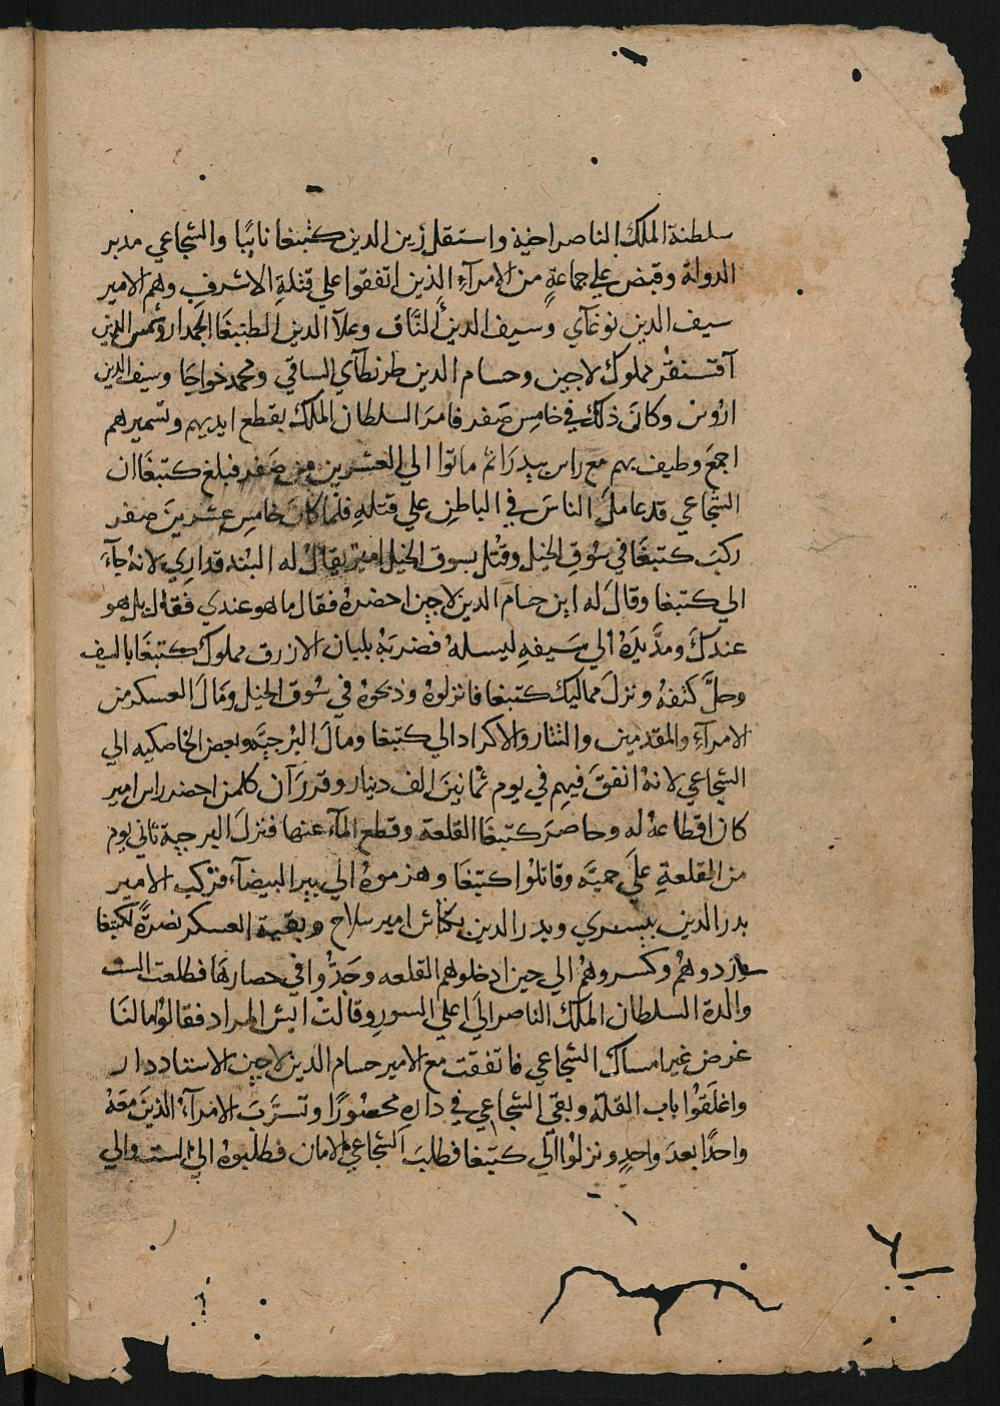 سلطنة الملك الناصر اخيه واستقل زين الدين كتبغا نايبًا والشجاعي مدبر
الدولة وقبض علي جماعةٍ من الامرآءِ الذين اتفقوا علي قتلةِ الاشرف وهم الامير
سيف الدين نوغآي وسيف الدين ألنّاق وعلآ الدين الطنبغا الجمدار وشمس الدين
آقسنقُر مملوك لاجين وحسام الدين طرنطآي الساقي ومحمد خواجا وسيف الدين
اروس وكانَ ذلك في خامِس صَفر فامرَ السلطان الملك بقطع ايديهم وتسميرهم
اجمعَ وطيف بهم مع راس بيدرَا ثم ماتوا الي العشرين من صَفر فبلغ كتبغَا ان
الشجاعي قد عاملَ الناسَ في الباطنِ علي قتلهِ فلما كانَ خامِس عِشرينَ صفر
ركبَ كتبغَا في سُوقِ الخيل وقُتل بسوق الخيل اميرٌ يقالُ له البُندقداري لانهُ جآءَ
الي كتبغا وقالَ له اين حسام الدين لاجين احضرهُ فقال ما هو عندي فقال بل هو
عندكَ ومدَّ يَدَهُ الي سَيفهِ ليسلهُ فضربَهُ بلبان الازرق مملوك كتبغَا بالسيف
وحلَّ كتفهُ ونزلَ مماليك كتبغا فانزلوهُ وذبحوهُ في سُوق الخيل ومَالَ العسكر من
الامرآءِ والمقدمين والتتار والاكراد الي كتبغا ومالَ البُرجيَّه وبعض الخاصكيه الي
الشجاعي لانهُ انفقَ فيهِم في يوم ثمانينَ الف دينار وقررَ آن كلمن احضر راس امير
كان اقطاعهُ له وحاصرَ كتبغَا القلعة وقطع المآء عنها فنزلَ البرجية ثاني يوم
من القلعةِ علَي حميَّه وقاتلُوا كتبغَا وهزموهُ الي بير البيضآء، فركب الامير
بدر الدين بيسري وبدر الدين بكتاش امير سلاح وبقية العسكر نصرةً لكتبغا
وردوهُم وكسروهُم الي حين ادخلوهم القلعه وجَدُّوا في حصارهَا فطلعت الست
والدة السلطان الملك الناصر اليَ اعلي السورِ وقالتْ ايش المراد فقالوُا ما لنَا
غرض غير امساك الشجاعي فاتفقت مع الامير حسام الدين لاجين الاستاددار
واغلقُوا باب القلة وبقي الشجاعي في دارهِ محصُورًا وتسرَّبَ الامَرآءُ الذينَ معَهُ
واحدًا بعدَ واحدٍ ونزلُوا الي كتبغا فطلبَ الشجاعي الامان فطلبوهُ الي الست والي